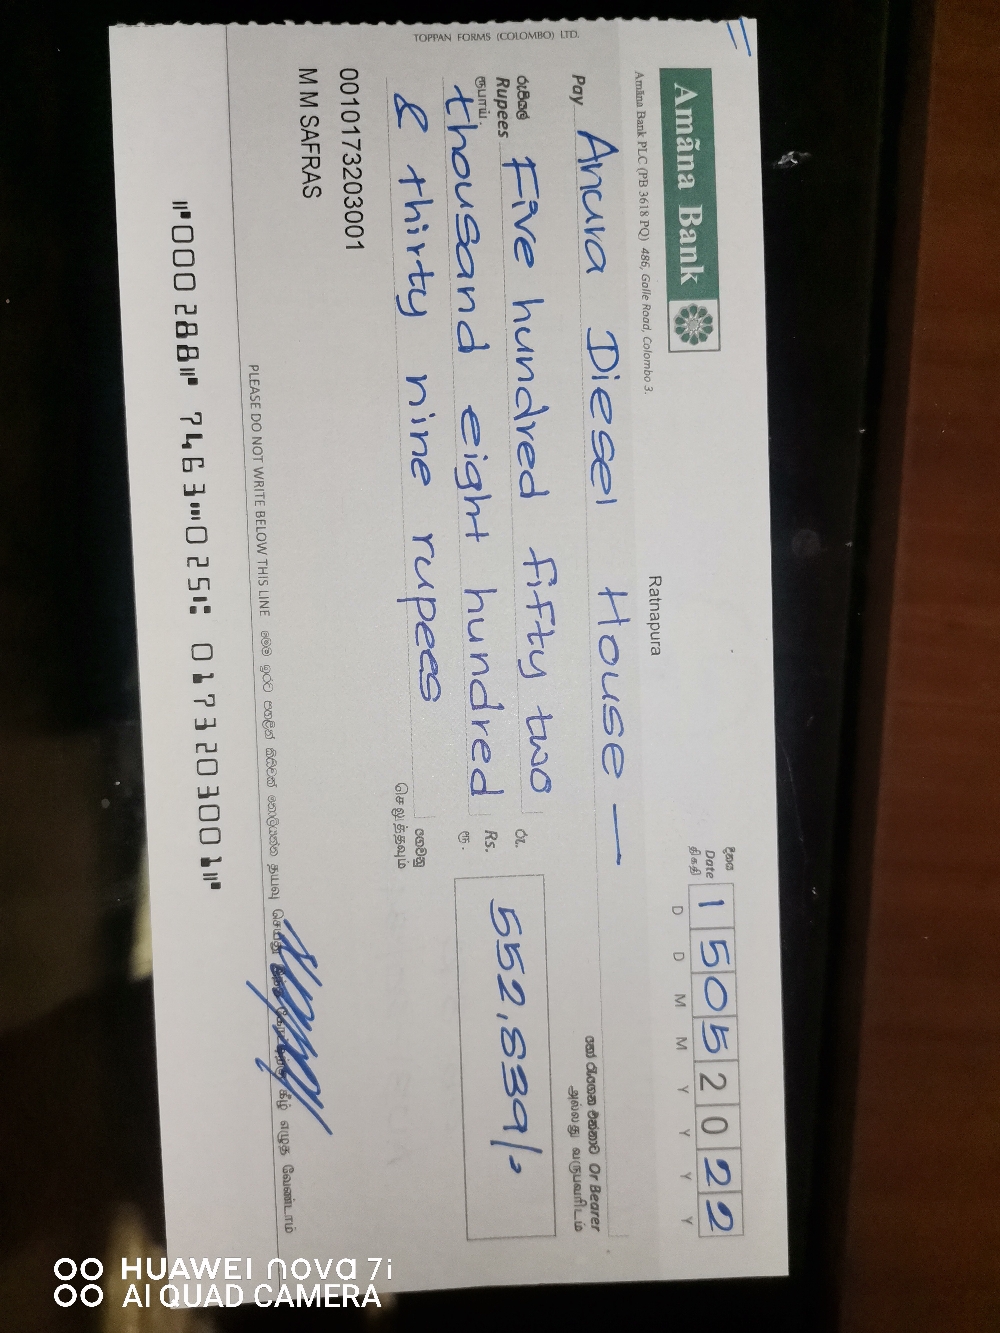 TOPPAN FORMS (COLOMBO) LTD.
Amãna Bank
Amãna Bank PLC (PB 3618 PQ) 486, Galle Road, Colombo 3.
Ratnapura
දිනය
Date
திகதி
1 5 0 5 2 0 2 2
D D M M Y Y Y Y
Pay Anura Diesel House —
හෝ රැගෙන එන්නාට Or Bearer
அல்லது வருபவரிடம்
රුපියල්
Rupees Five hundred fifty two
ரூபாய்
thousand eight hundred
& thirty nine rupees
ගෙවනු
செலுத்தவும்
රු.
Rs. 552,839/-
ரூ.
001017320300​1
M M SAFRAS
PLEASE DO NOT WRITE BELOW THIS LINE மேற்
⑈000288⑈ 7463⑉025⑆ 0173203001⑈
HUAWEI nova 7i
AI QUAD CAMERA